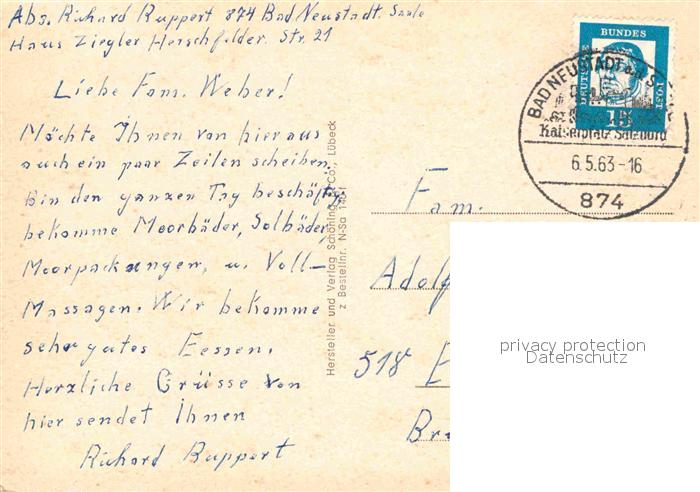 Abs. Richard Ruppert 874 Bad Neustadt. Saale
Haus Ziegler Herschfelder. Str. 21
Liebe Fam. Weber!
Möchte Ihnen von hier aus
auch ein paar Zeilen scheiben.
Bin den ganzen Tag beschäftig
bekomme Moorbäder, Solbäder,
Moorpackungen, u. Voll-
Massagen. Wir bekomme
sehr gutes Eessen.
Herzliche Grüsse von
hier sendet Ihnen
Richard Ruppert
Hersteller und Verlag Schöning & Co., Lübeck
z Bestellnr. N-Sa
DEUTSCHE BUNDES POST
15
BAD NEUSTADT a.d. S
Kaiserpfalz Salzburg
6.5.63-16
874
Fam.
Adolf
518 E
Br
privacy protection
Datenschutz